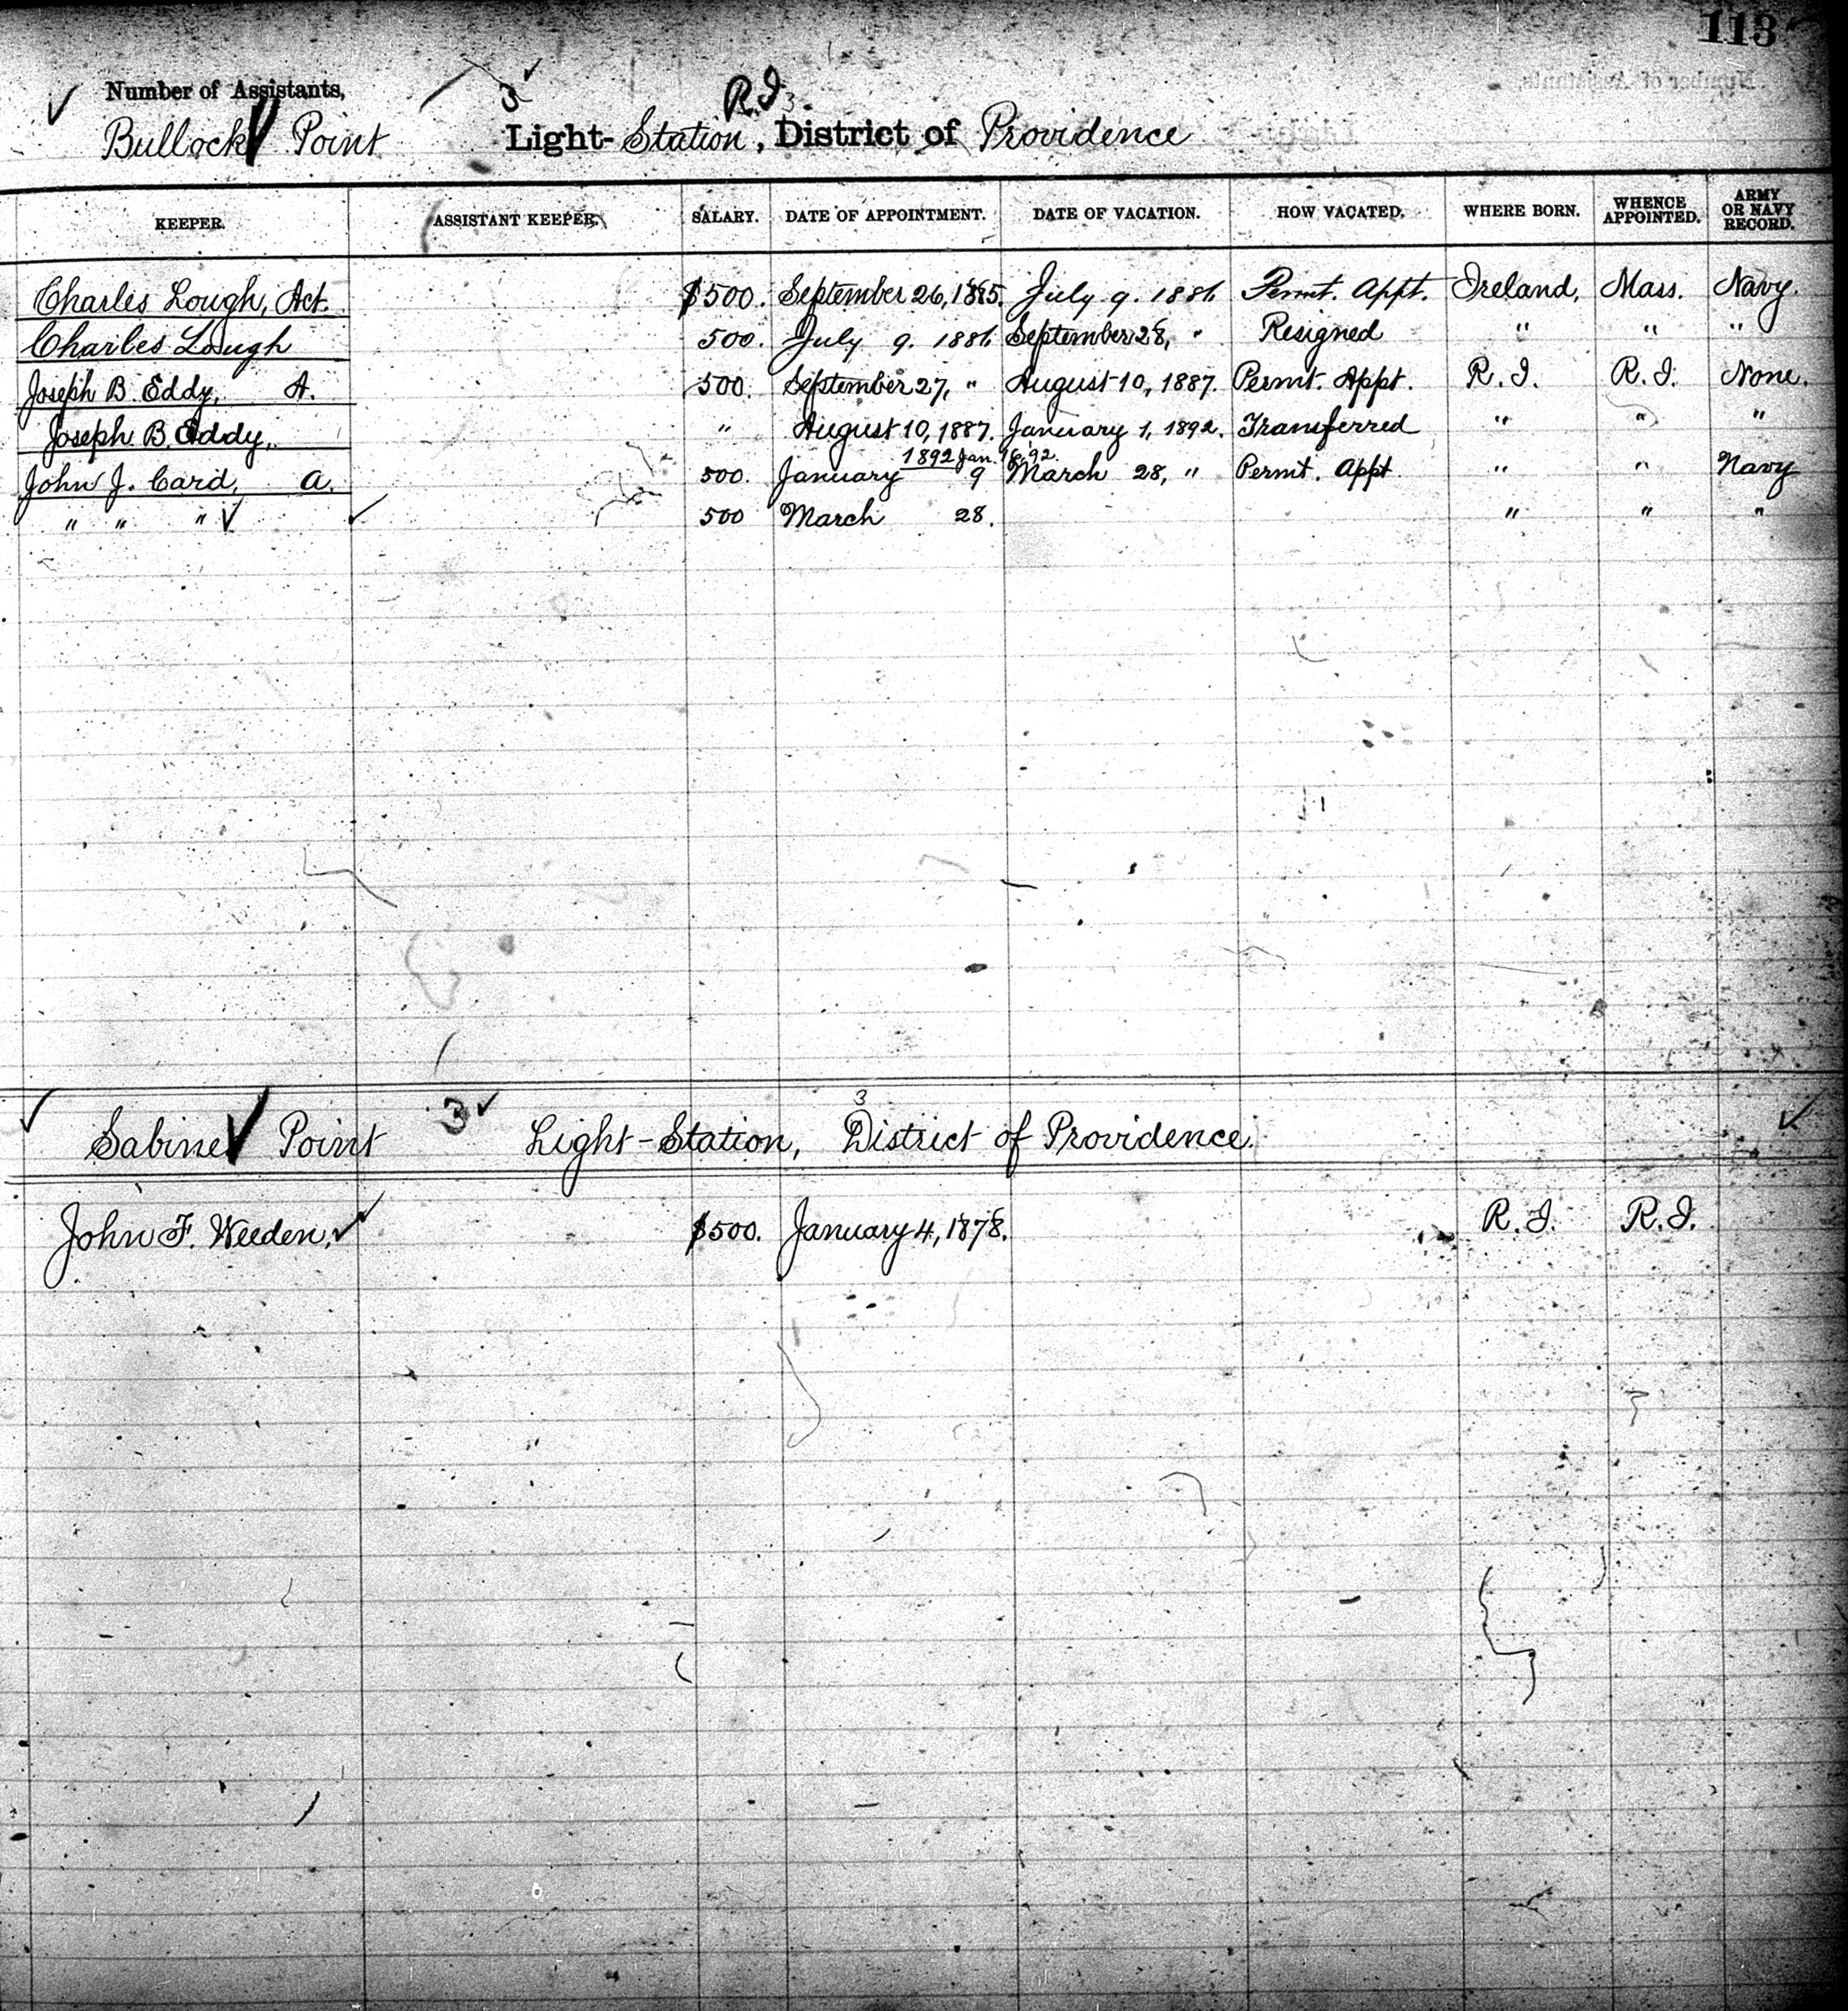 113
Number of Assistants, 3
R.I. 3
Bullock Point Light-Station, District of Providence
KEEPER. ASSISTANT KEEPER. SALARY. DATE OF APPOINTMENT. DATE OF VACATION. HOW VACATED. WHERE BORN. WHENCE APPOINTED. ARMY OR NAVY RECORD.
Charles Lough, Act. $500. September 26, 1885. July 9. 1886 Permt. Appt. Ireland, Mass. Navy.
Charles Lough 500. July 9. 1886 September 28, " Resigned " " "
Joseph B. Eddy, A. 500. September 27, " August 10, 1887. Permt. Appt. R.I. R.I. None.
Joseph B. Eddy, " August 10, 1887. January 1, 1892. Transferred " " "
1892 Jan. '92.
John J. Card, A. 500. January 9 March 28, " Permt. Appt " " Navy
" " " 500 March 28. " " "
3 3
Sabine Point Light-Station, District of Providence.
John F. Weeden, $500. January 4, 1878. R.I. R.I.